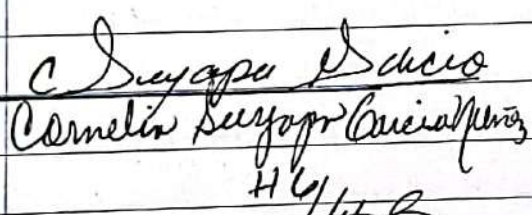 C Suyapa Garcia
Cornelia Suyapa Garcia Nuñez